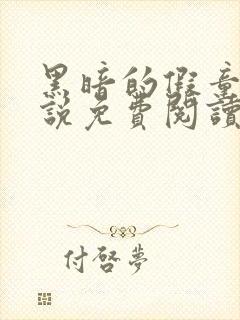 黑暗的假童
說免費閱讀
付啓夢